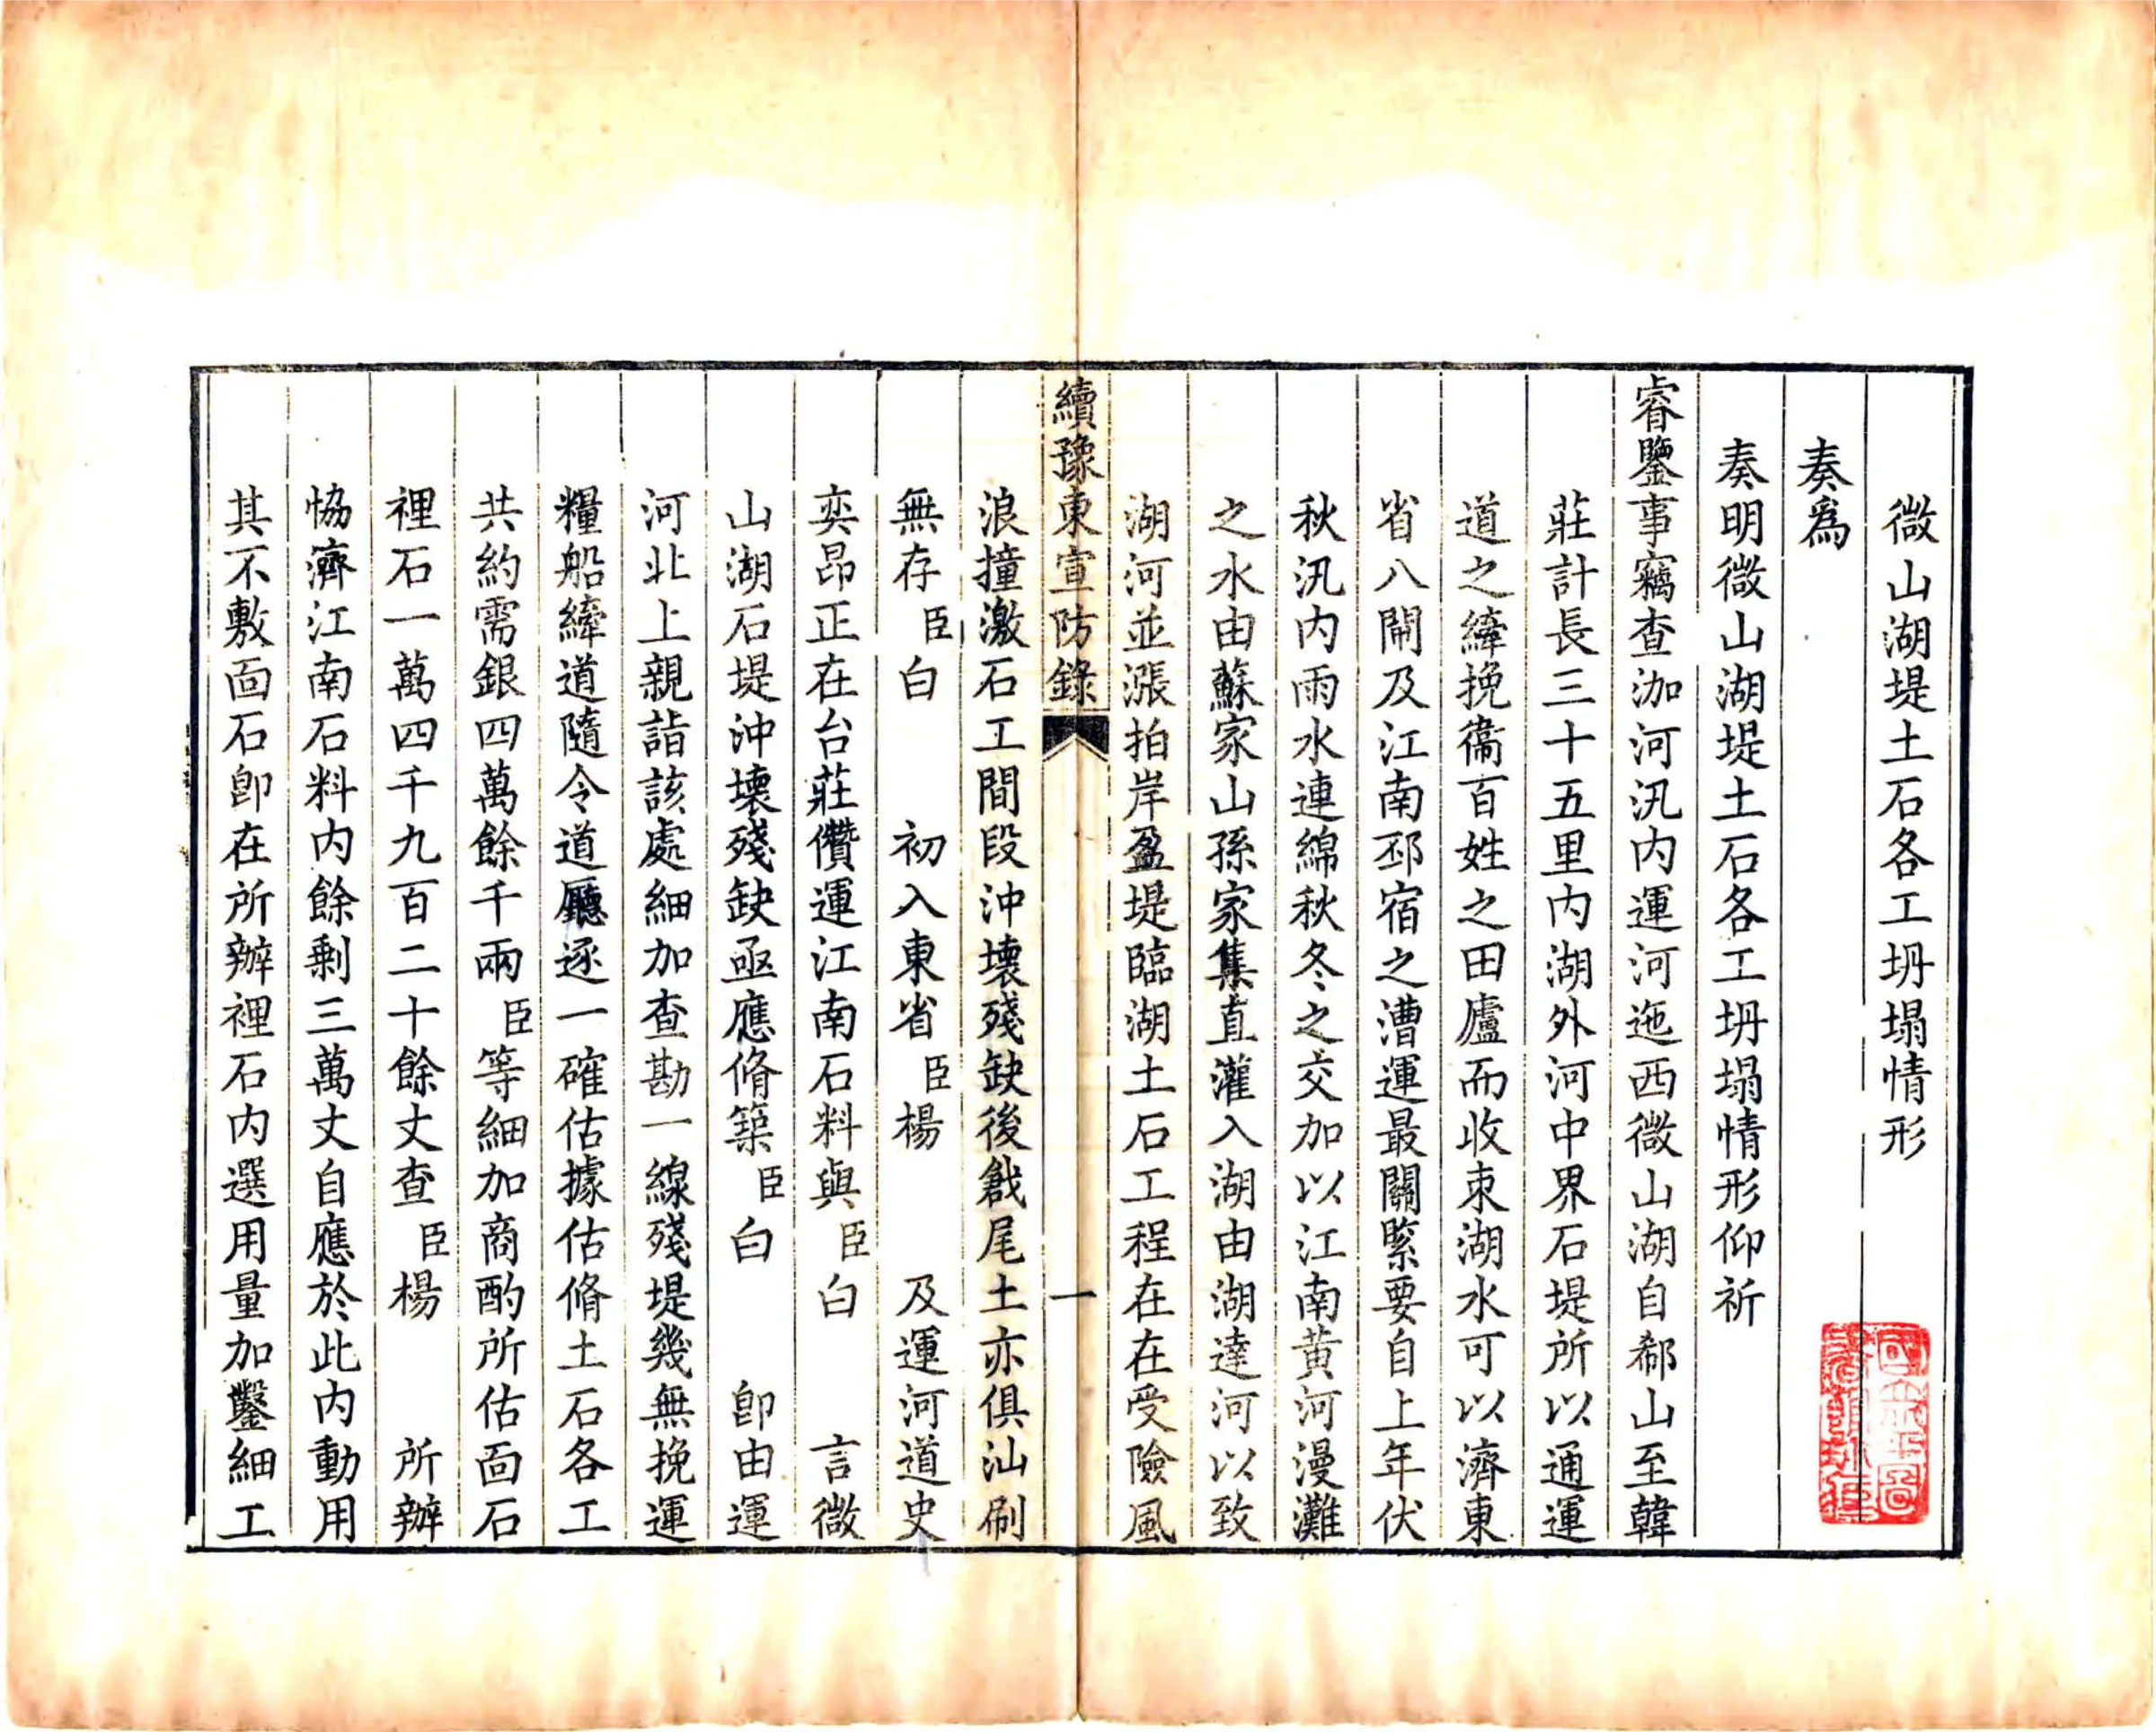 微山湖堤土石各工坍塌情形
奏為
奏明微山湖堤土石各工坍塌情形仰祈
睿鑒事竊查泇河汛内運河迤西微山湖自郗山至韓
莊計長三十五里内湖外河中界石堤所以通運
道之縴挽衞百姓之田廬而收束湖水可以濟東
省八閘及江南邳宿之漕運最關緊要自上年伏
秋汛内雨水連綿秋冬之交加以江南黄河漫灘
之水由蘇家山孫家集直灌入湖由湖達河以致
湖河並漲拍岸盈堤臨湖土石工程在在受險風
續豫東宣防錄
一
浪撞激石工間段沖壞殘缺後戧尾土亦俱汕刷
無存臣白 初入東省臣楊 及運河道史
奕昂正在台莊儹運江南石料與臣白 言微
山湖石堤沖壞殘缺亟應脩築臣白 卽由運
河北上親詣該處細加查勘一線殘堤幾無挽運
糧船縴道隨令道廳逐一確估據估脩土石各工
共約需銀四萬餘千兩臣等細加商酌所估面石
裡石一萬四千九百二十餘丈查臣楊 所辦
恊濟江南石料内餘剩三萬丈自應於此内動用
其不敷面石卽在所辦裡石内選用量加鑿細工